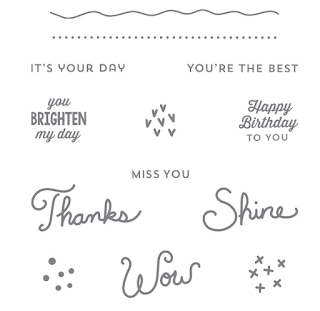 IT'S YOUR DAY
YOU'RE THE BEST
you
BRIGHTEN
my day
Happy
Birthday
TO YOU
MISS YOU
Thanks
Shine
Wow